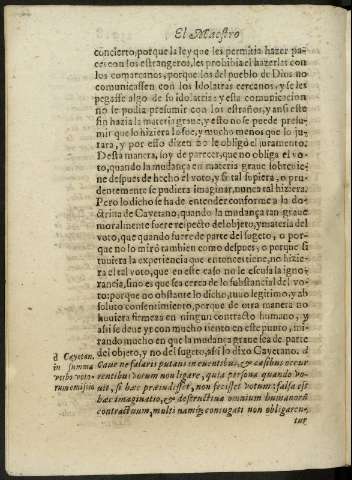 El Maestro
concierto, porque la ley que les permitia hazer pa-
ces con los estrangeros, les prohibia el hazerlas con
los comarcanos, porque los del pueblo de Dios no
comunicassen con los Idolatras cercanos, y se les
pegasse algo de su idolatria: y esta comunicacion
no se podia presumir con los estraños, y ansi este
fin hazia la materia graue, y esto no se puede presu-
mir que lo hiziera Iosue, y mucho menos que lo ju-
rara, y por esso dizen no le obligó el juramento.
Desta manera, soy de parecer, que no obliga el vo-
to, quando la mudança en materia graue sobreuie-
ne despues de hecho el voto, y si tal supiera, o pru-
dentemente se pudiera imaginar, nunca tal hiziera.
Pero lo dicho se ha de entender conforme a la do-
ctrina de Cayetano, quando la mudança tan graue
moralmente fuere respecto del objeto, y materia del
voto, que quando fuere de parte del sugeto, o por-
que no lo miró tambien como despues, o porque si
tuuiera la experiencia que entonces tiene, no hizie-
ra el tal voto, que en este caso no le escusa la igno-
rancia, sino es que sea cerca de lo substancial del vo-
to: porque no obstante lo dicho, tuuo legitimo, y ab
soluto consentimiento, porque de otra manera no
huuiera firmeza en ningun contracto humano, y
assi se deue yr con mucho tiento en este punto, mi-
rando mucho en que la mudança graue sea de parte
del objeto, y no del sugeto, assi lo dixo Cayetano. d
d Cayetan.
in summa
verbo voto-
rum emissio
Caue ne fallaris putans in euentibus, & casibus occur
rentibus votum non ligare, quia persona quando vo-
uit, si hæc præuidisset, non fecisset votum: falsa est
hæc imaginatio, & destructiua omnium humanorũ
contractuum, multi namq; coniugati non obligaren-
tur